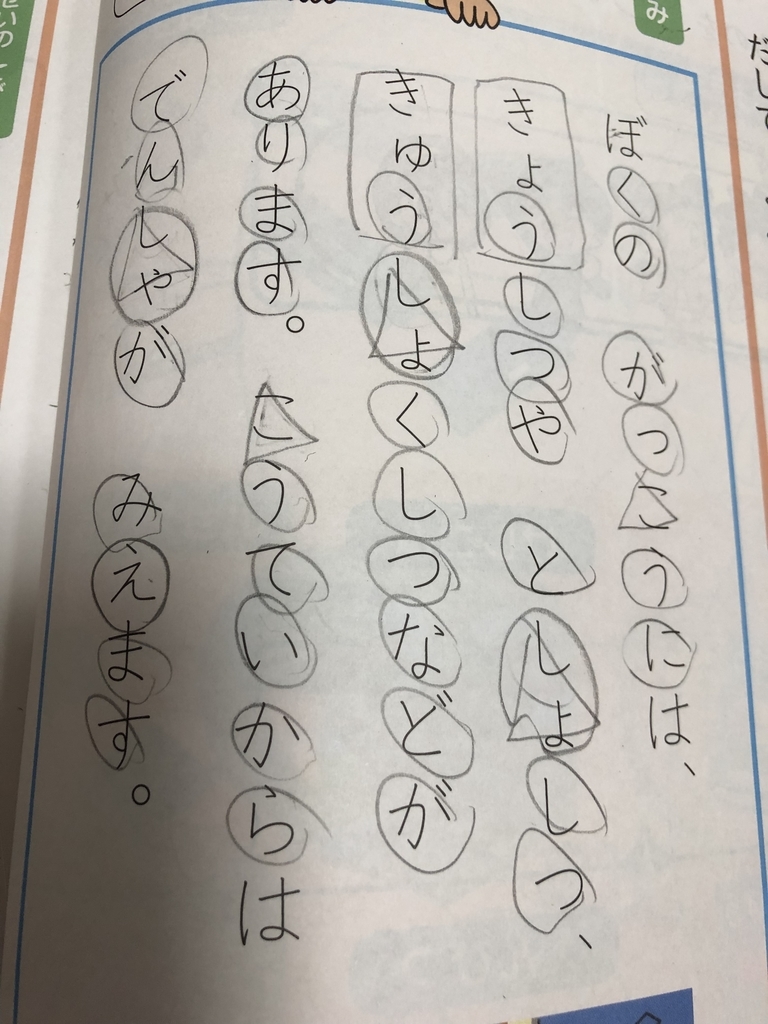 だして
み
ぼくの　がっこうには、
きょうしつや　としょしつ、
きゅうしょくしつなどが
あります。こうていからは
でんしゃが　みえます。